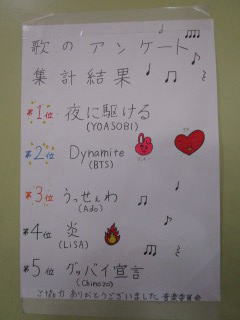 歌のアンケート
集計結果
第1位 夜に駆ける
(YOASOBI)
第2位 Dynamite
(BTS)
第3位 うっせぇわ
(Ado)
第4位 炎
(LiSA)
第5位 グッバイ宣言
(Chinozo)
ご協力ありがとうございました 音楽委員会